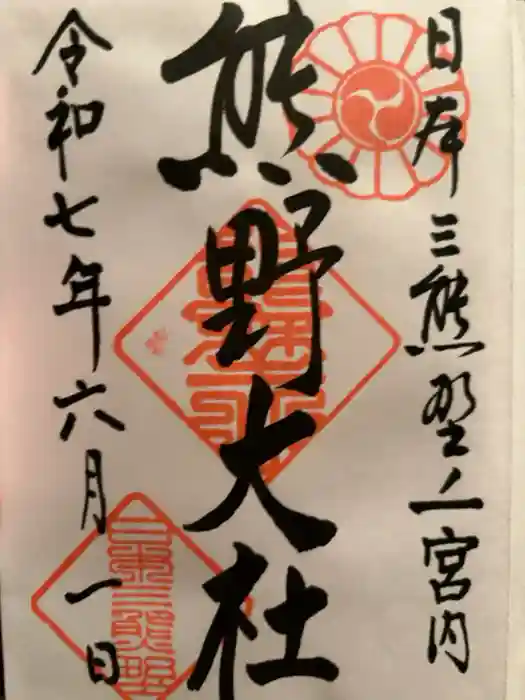 日本三熊野ノ一宮内
熊野大社
令和七年六月一日